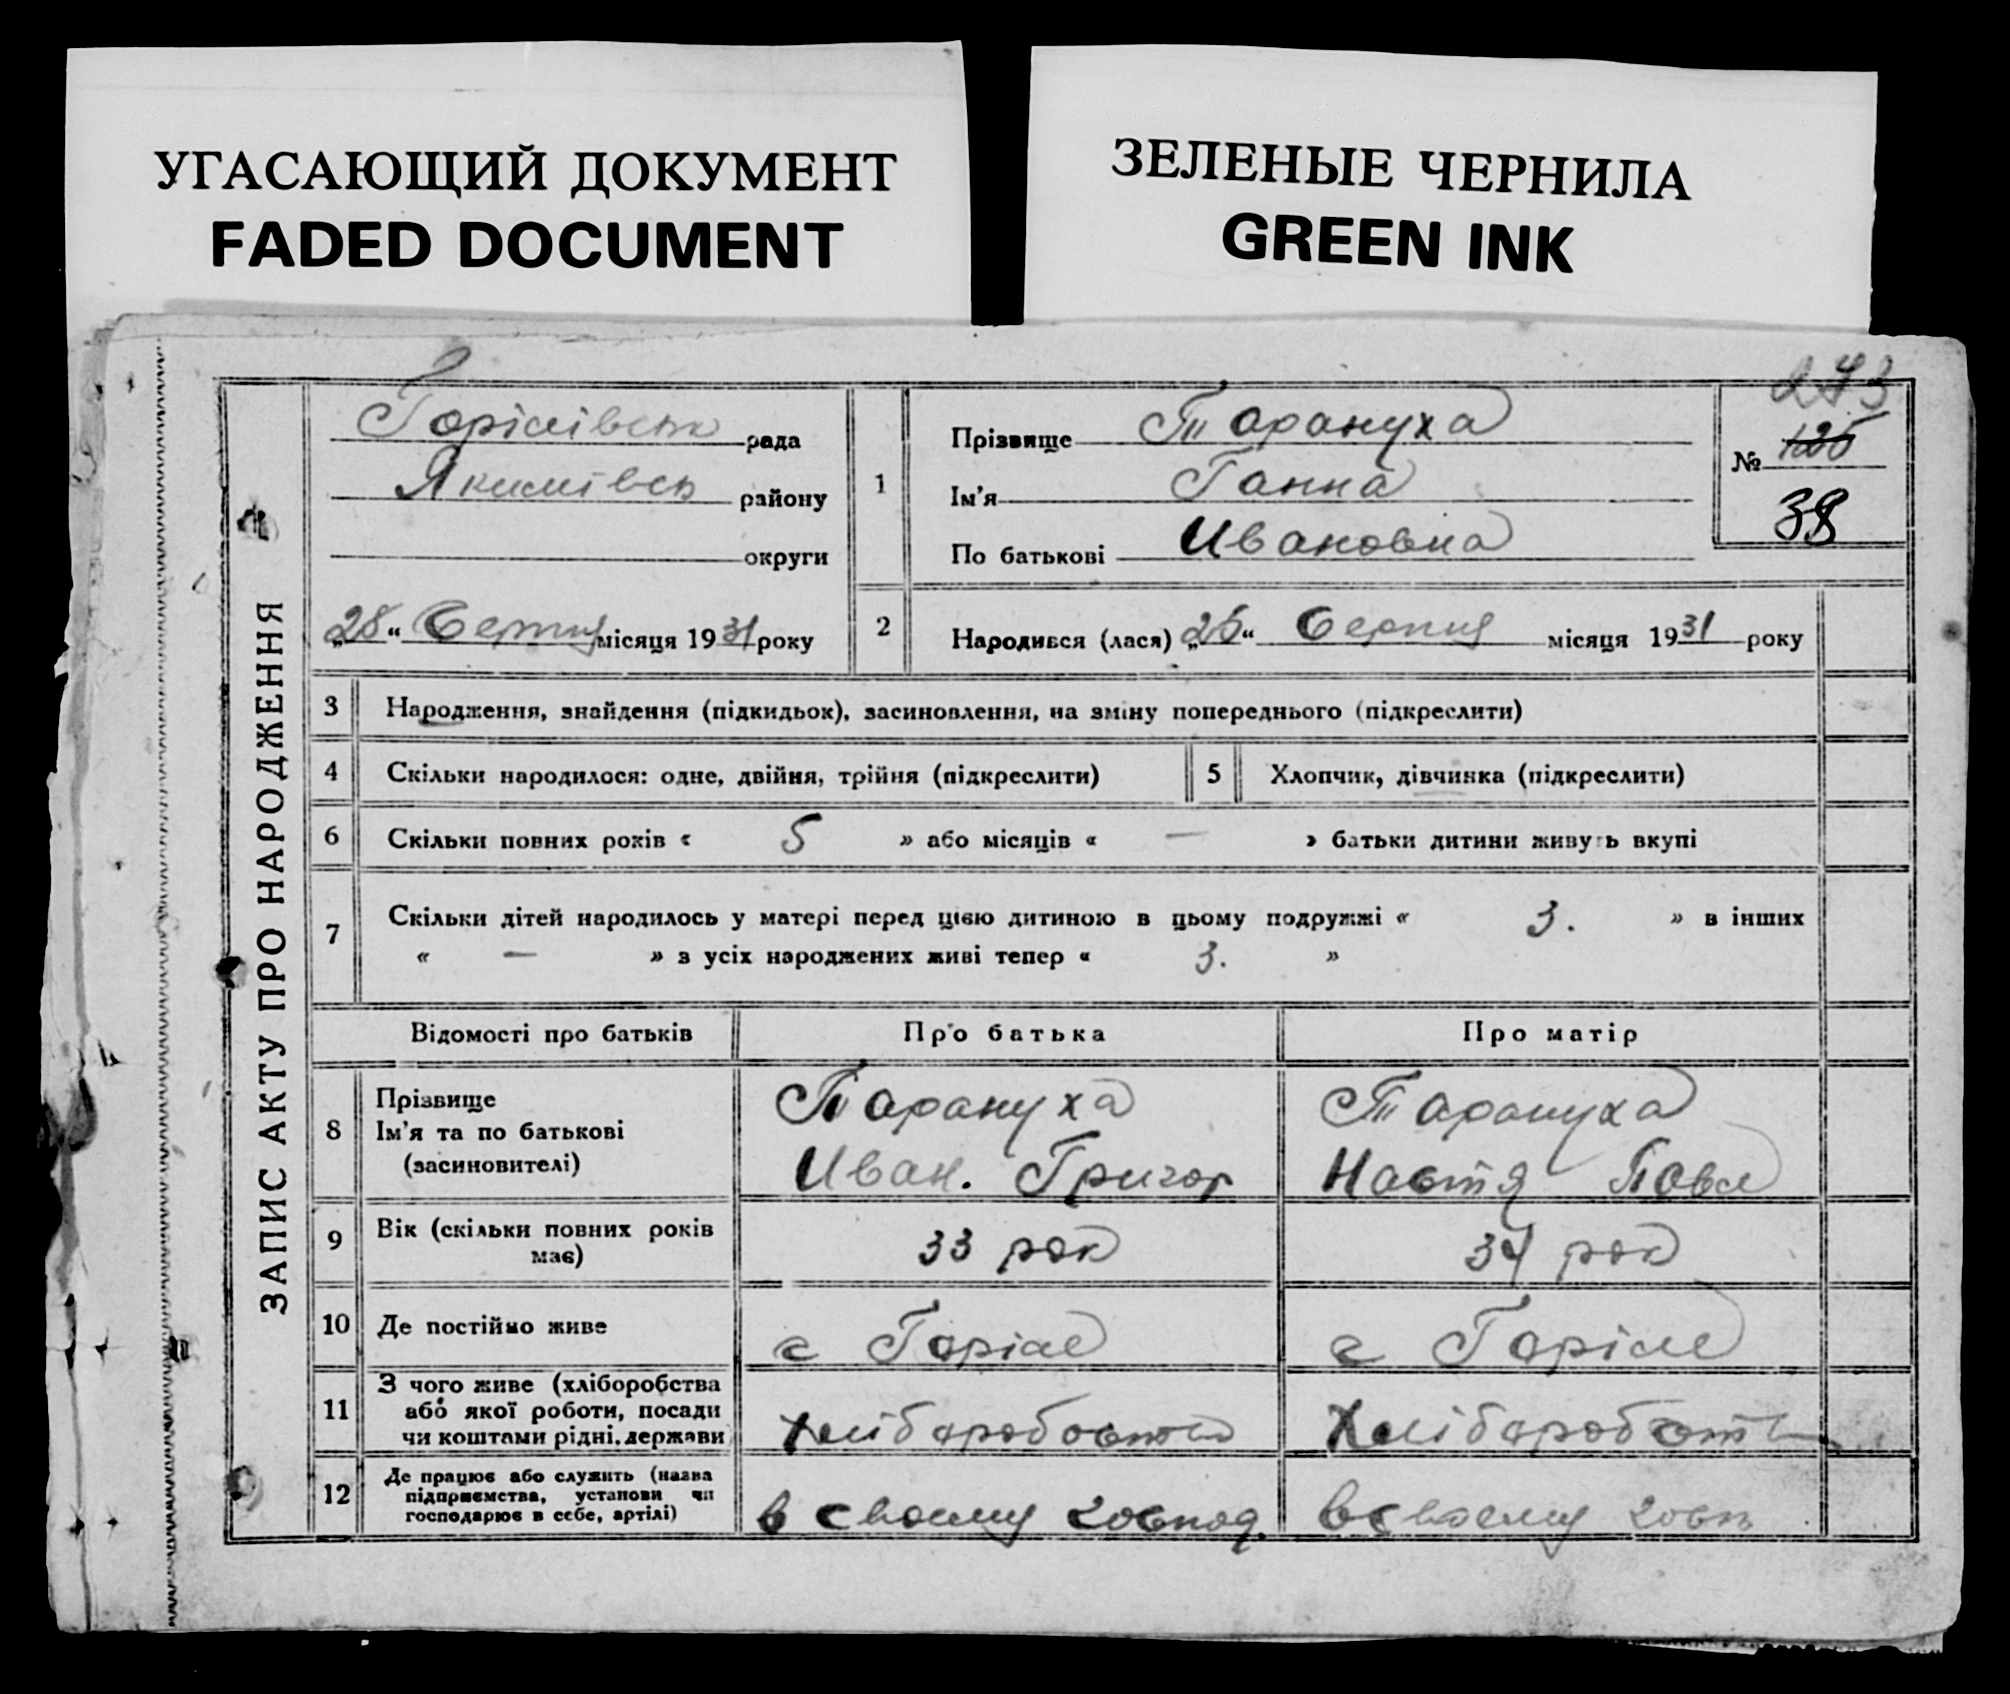 УГАСАЮЩИЙ ДОКУМЕНТ
FADED DOCUMENT
ЗЕЛЕНЫЕ ЧЕРНИЛА
GREEN INK
273
ЗАПИС АКТУ ПРО НАРОДЖЕННЯ
Горілівськ рада
Якимівськ району
округи
„28“ Серпня місяця 1931 року
1
Прізвище Тарануха
Ім'я Ганна
По батькові Ивановна
№ 125
38
2 Народився (лася) „25“ Серпня місяця 1931 року
3 Народження, знайдення (підкидьок), засиновлення, на зміну попереднього (підкреслити)
4 Скільки народилося: одне, двійня, трійня (підкреслити) 5 Хлопчик, дівчинка (підкреслити)
6 Скільки повних років « 5 » або місяців « — » батьки дитини живуть вкупі
7 Скільки дітей народилось у матері перед цією дитиною в цьому подружжі « 3. » в інших
« — » з усіх народжених живі тепер « 3. »
Відомості про батьків Про батька Про матір
8 Прізвище
Ім'я та по батькові
(засиновителі)
Тарануха
Иван. Григор
Тарануха
Настя Павл
9 Вік (скільки повних років
має)
33 рок
34 рок
10 Де постійно живе с Горіле с Горіле
11 З чого живе (хліборобства
або якої роботи, посади
чи коштами рідні, держави
Хліборобство
Хліборобст
12 Де працює або служить (назва
підприємства, установи чи
господарює в себе, артілі)
в своему господ.
в своему госп